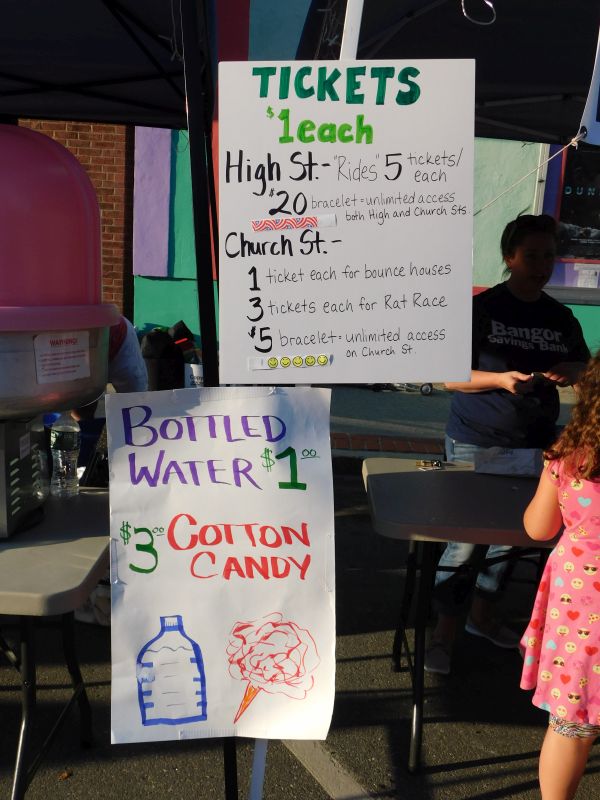 TICKETS
$1 each
High St.- "Rides" 5 tickets/
each
$20 bracelet = unlimited access
both High and Church Sts.
Church St. -
1 ticket each for bounce houses
3 tickets each for Rat Race
$5 bracelet = unlimited access
on Church St.
BOTTLED
WATER $1.00
$3.00 COTTON
CANDY
WARNING!
Bangor
Savings Bank
DUN